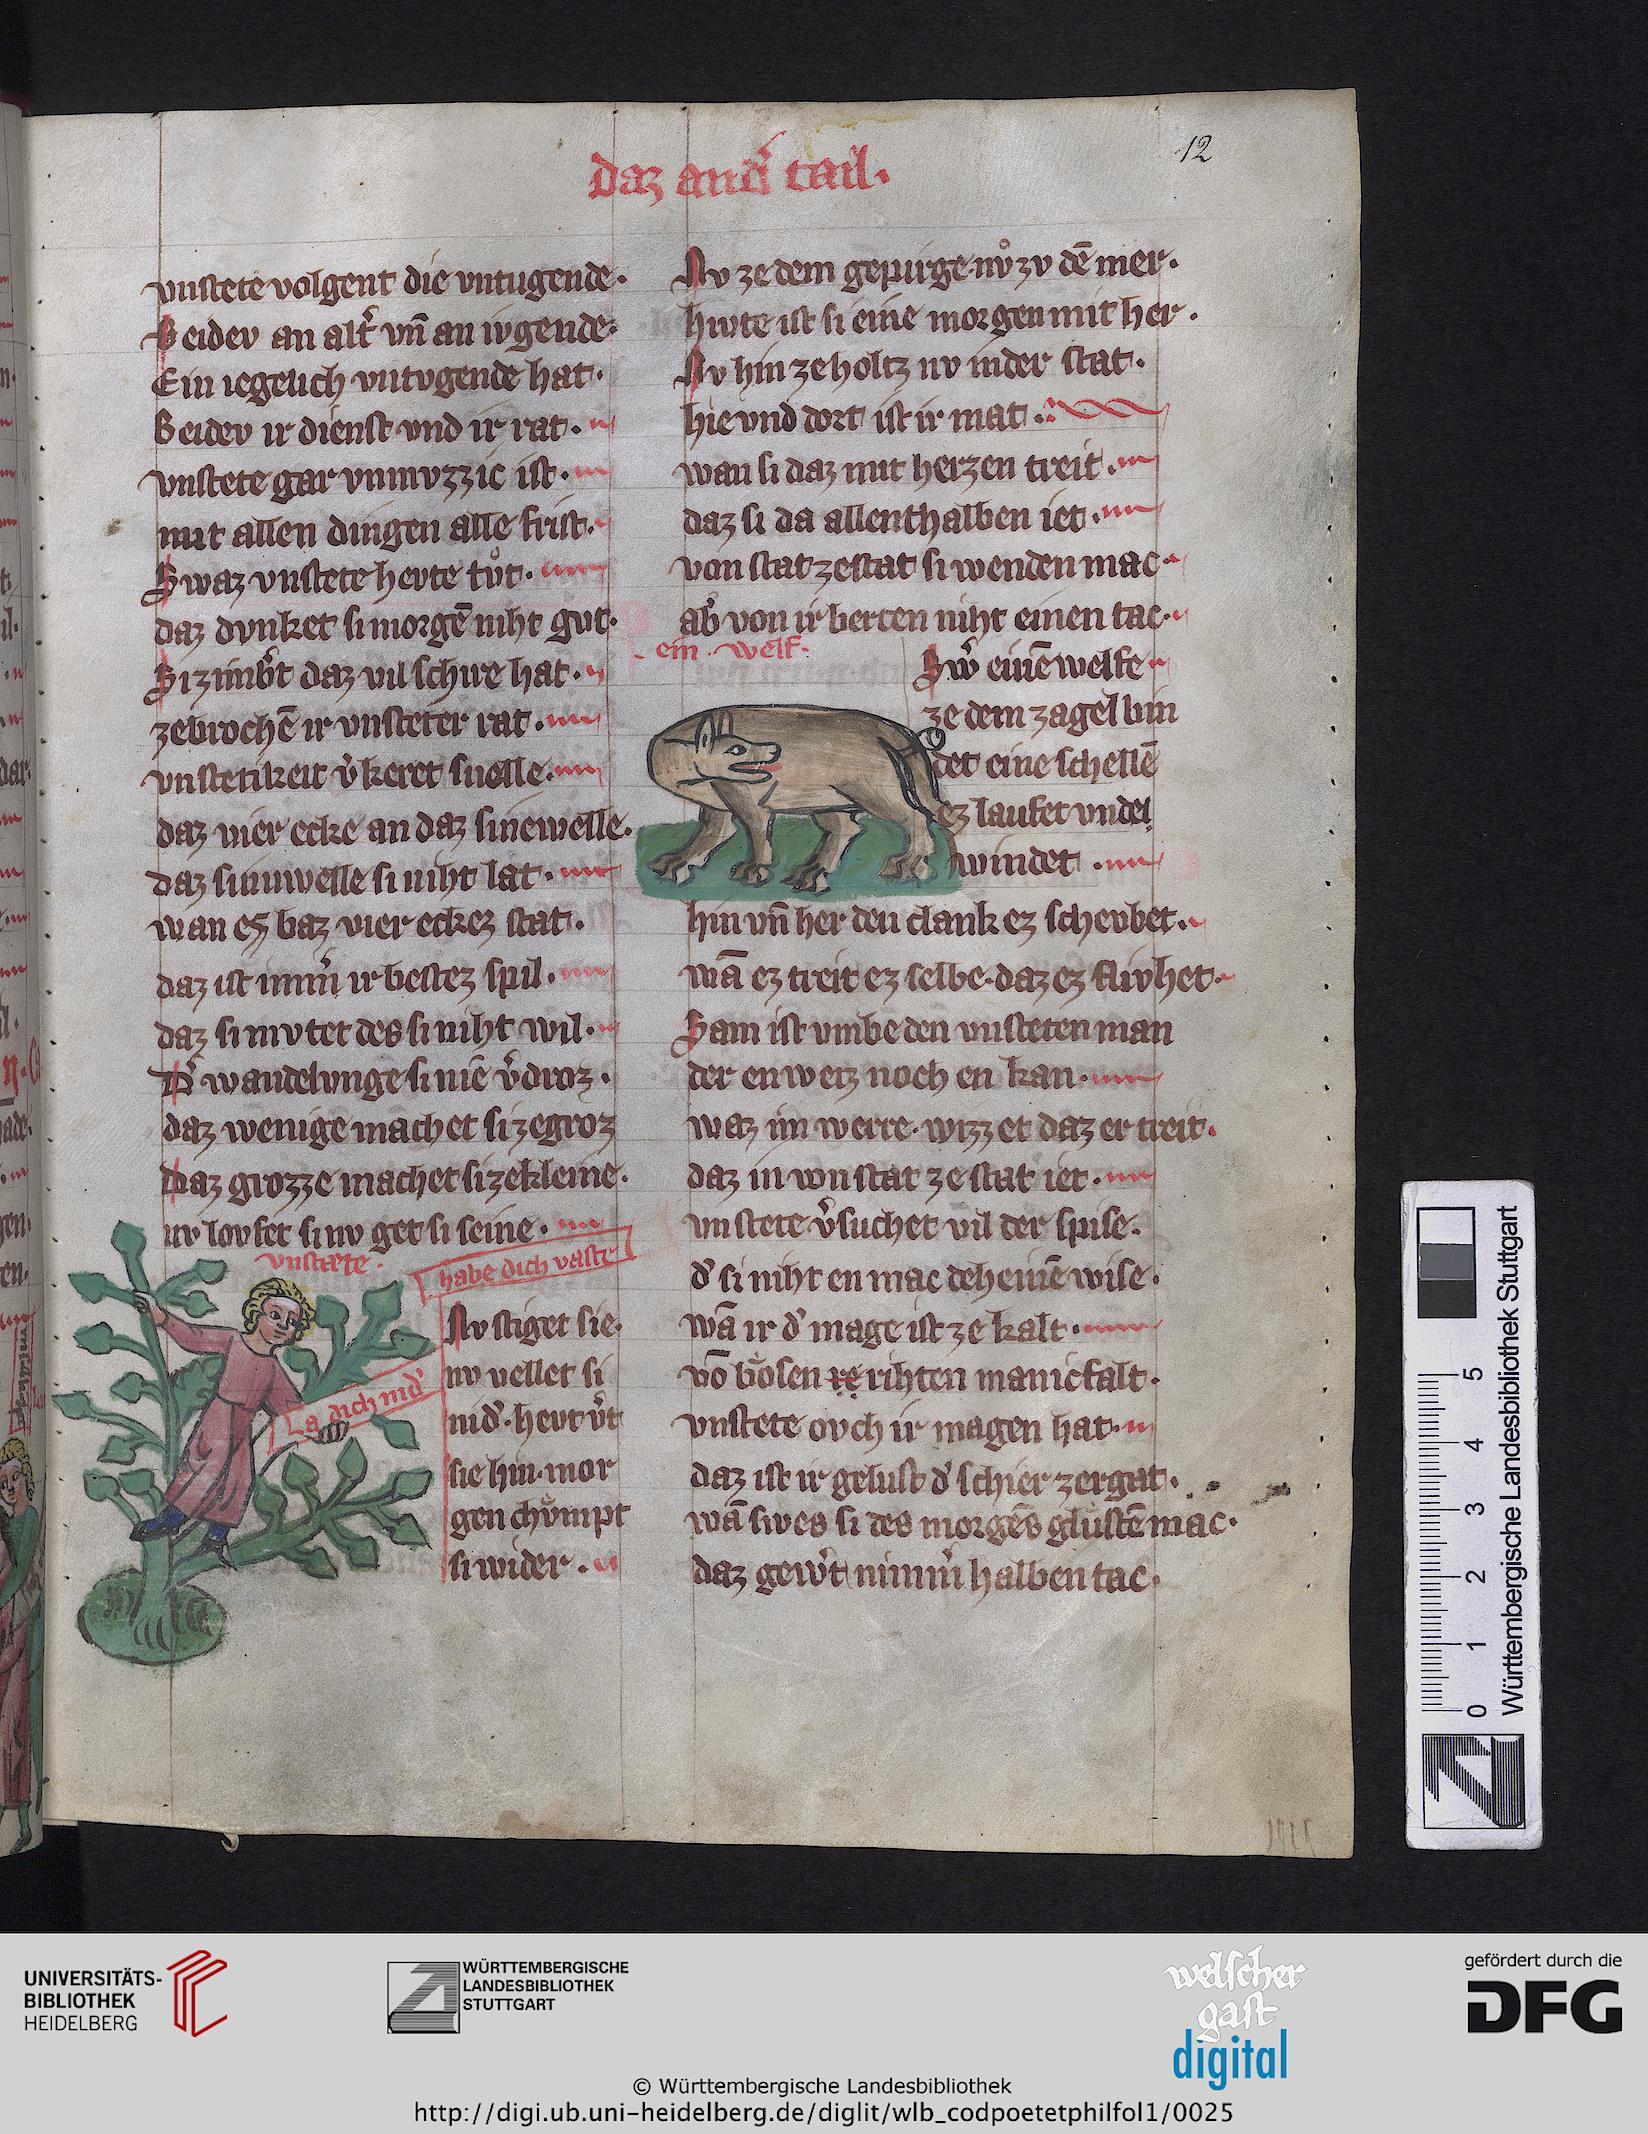 12
daz and͛ tail.
vnstete volgent die vntugende.
Beidev an alt͛ vn̄ an ivgende.
Ein iegelich vntvgende hat.
Beidev ir dienst vnd ir rat.
vnstete gar vnmvzzic ist.
mit allen dingen alle frist.
Swaz vnstete hevte tůt.
daz dvnket si morgē niht gvt.
Si zimb͛t daz vil schire hat.
zebrochē ir vnsteter rat.
vnstetikeit v͛keret snelle.
daz vier ecke an daz sinewelle.
daz sinwelle si niht lat.
wan es baz vier eckez stat.
daz ist imm͛ ir bestez spil.
daz si mvtet des si niht wil.
D͛ wandelvnge si nie v͛droz.
daz wenige machet si zegroz
daz grozze machet si zekleine.
nv lovfet si nv get si seine.
vnstæte.
habe dich vaste
la dich nid͛
Nv stiget sie.
nv vellet si
nid͛. hevt v͛t
sie hin. mor
gen chvͦmpt
si wider.
Nv ze dem gepirge nvͦ zv dē mer.
hivte ist si eine morgen mit her.
Nv hin ze holtz nv inder stat.
hie vnd dort ist ir mat.
wan si daz mit herzen treit.
daz si da allenthalben iet.
von stat zestat si wenden mac.
ab͛ von ir berten niht einen tac.
ein welf.
Sw͛ einē welfe
ze dem zagel bin
det eine schellē
ez laufet vnde
windet.
hin vn̄ her den clank ez schevbet.
wā ez treit ez selbe. daz ez flivhet.
Sam ist vmbe den vnsteten man
der enweiz noch en kan.
waz im werre. wizzet daz er treit.
daz in von stat ze stat iet.
vnstete v͛suchet vil der spise.
d͛ si niht en mac deheinē wise.
wā ir d͛ mage ist ze kalt.
vō bösen re rihten manicfalt.
vnstete ovch ir magen hat.
daz ist ir gelust d͛ schier zergat.
wā swes si des morgēs glustē mac.
daz gew͛t nimm͛ halben tac.
0 1 2 3 4 5
Württembergische Landesbibliothek Stuttgart
UNIVERSITÄTS-
BIBLIOTHEK
HEIDELBERG
WÜRTTEMBERGISCHE
LANDESBIBLIOTHEK
STUTTGART
welscher
gast
digital
gefördert durch die
DFG
© Württembergische Landesbibliothek
http://digi.ub.uni-heidelberg.de/diglit/wlb_codpoetetphilfol1/0025